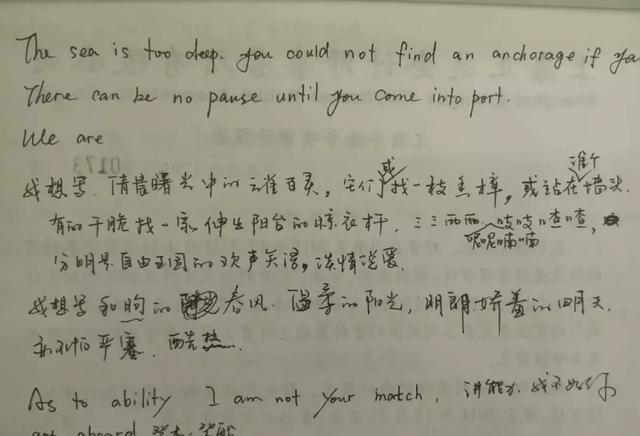 The sea is too deep. you could not find an anchorage if you
There can be no pause until you come into port.
We are
我想写.清晨曙光中的云雀百灵,它们或找一枝香樟,或站在谁个墙头.
有的干脆找一家伸出阳台的晾衣杆.三三两两.吱吱喳喳,呢呢喃喃
分明是自由王国的欢声笑语,谈情说爱.
我想写和煦的春风.温柔的阳光,明朗娇羞的四月天.
严寒.酷热.
As to ability I am not your match, 讲能力.我不如你
get aboard